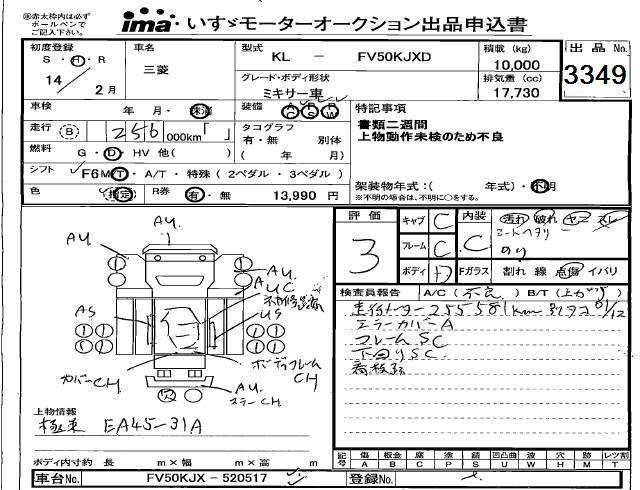 ※赤太枠内は必ず
ボールペンで
ご記入下さい。
ima いすゞモーターオークション出品申込書
初度登録
S ・ H ・ R
14 / 2 月
車名
三菱
型式
KL - FV50KJXD
グレード・ボディ形状
ミキサー車
積載 (kg)
10,000
排気量 (cc)
17,730
出 品 No.
3349
車検 年 月・ 抹消
装備 A/C P/S R/W
走行 (B) 256 000km「 」
タコグラフ
有・無 別体
( 年 月)
燃料 G・D・HV 他( )
シフト F6 MT・A/T・特殊 (2ペダル・3ペダル)
色 指定 R券 有・無 13,990 円
特記事項
書類二週間
上物動作未検のため不良
架装物年式:( 年式)・不明
※不明の場合は、不明に○をする。
評価
3
キャブ C
フレーム C
ボディ D
内装
C
汚れ 破れ
シートヘタリー
Fガラス 割れ 線 点傷 イバリ
検査員報告 A/C (不良) B/T (
走行メーター255581km
エラーカバーA
フレームSC
下回りSC
看板跡
AU
AU
A
UC
AS
US
ボディフレーム
CH
カバーCH
AU
ステーCH
上物情報
極東 EA45-31A
ボディ内寸約 長 m×幅 m×高 m
記号 傷A 板金B 腐C 塗P 錆S 凹U 凸凹曲W 波W 穴H 跡M 痕T レツ割
車台No. FV50KJX-520517
登録No.